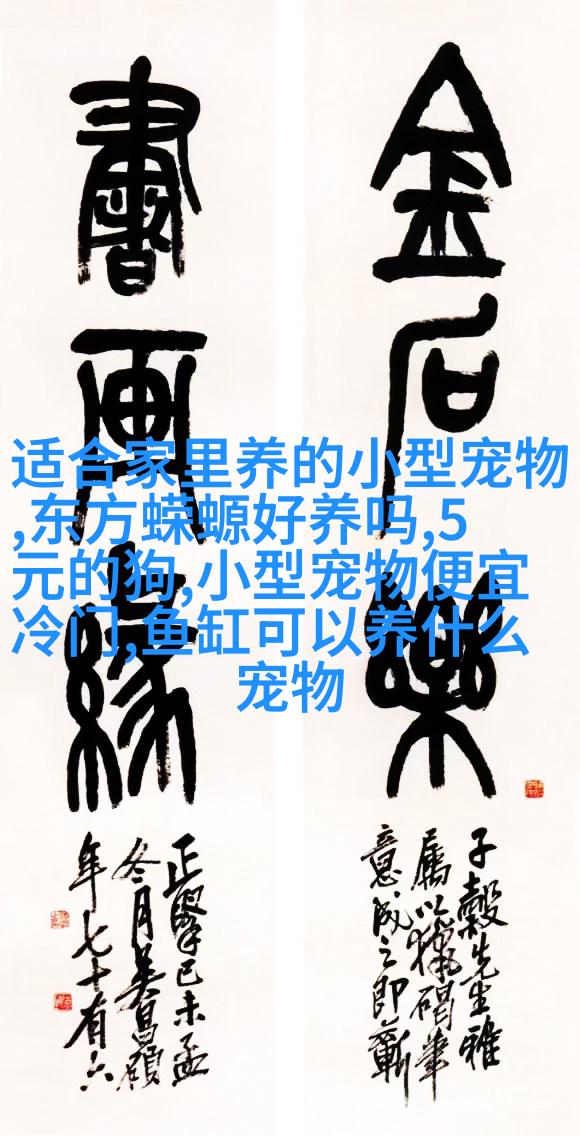 金石樂
子穀先生雅
屬以獵碣筆
意成之即蘄
書畫緣
正 己未孟
冬月吳昌碩
年七十有六
适合家里养的小型宠物
,东方蝾螈好养吗,5
元的狗,小型宠物便宜
冷门,鱼缸可以养什么
宠物